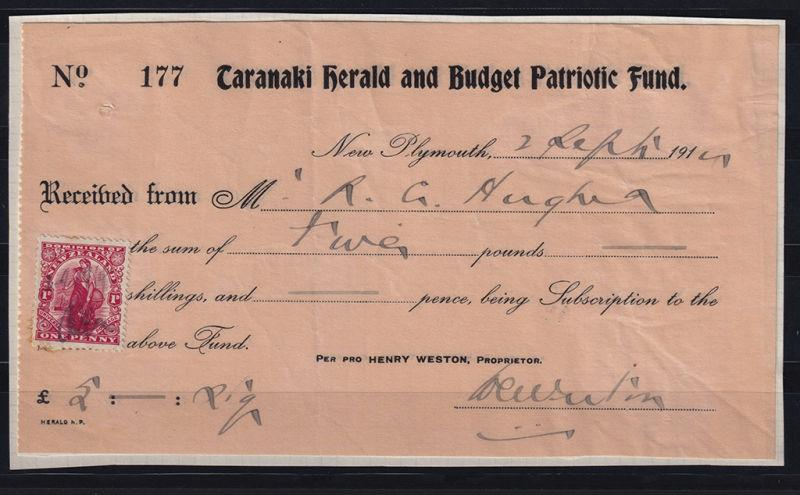 No 177 Taranaki Herald and Budget Patriotic Fund.
New Plymouth, 2 Sept 191
Received from Mr R. G. Hughes
the sum of Five pounds
shillings, and pence, being Subscription to the
above Fund.
DOMINION OF
NEW ZEALAND
1D 1D
ONE PENNY
PER PRO HENRY WESTON, PROPRIETOR.
£ 5 : — :
HERALD N.P.